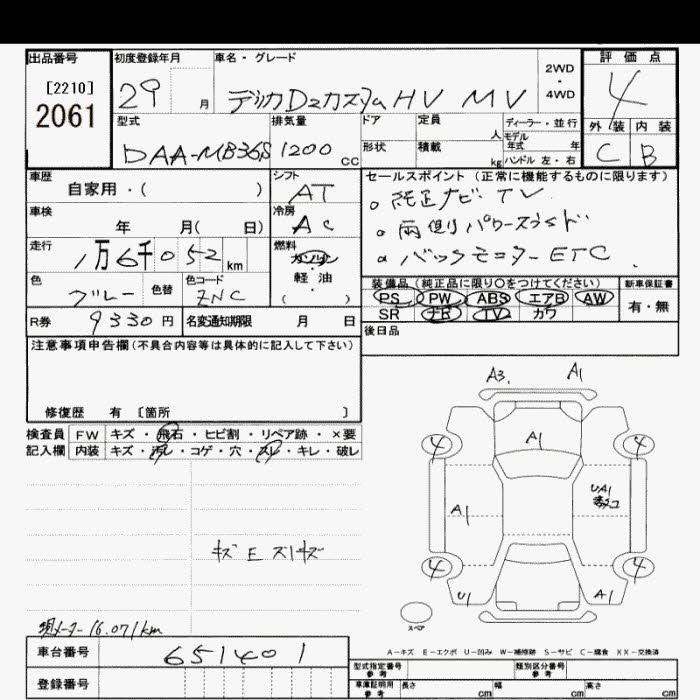 出品番号 初度登録年月 車名・グレード 2WD・4WD 評価点
[2210] 2061 29 月 デリカD2カスタムHV MV 4
型式 排気量 ドア 定員 人 ディーラー・並行 外装 内装
DAA-MB36S 1200 cc 形状 積載 kg モデル年式 年 ハンドル 左・右 C B
車歴 自家用・( ) シフト AT
セールスポイント (正常に機能するものに限ります)
○ 純正ナビ TV
車検 年 月( 日) 冷房 AC
○ 両側パワースライド
走行 1万6千052 km 燃料 ガソリン・軽油・( )
○ バックモニター ETC
色 グレー 色替 色コード ZNC
装備品 (純正品に限り○をつけてください) 新車保証書
PS PW ABS エアB AW 有・無
SR ナビ TV カワ
R券 9330円 名変通知期限 月 日
後日品
注意事項申告欄(不具合内容等は具体的に記入して下さい)
修復歴 有 〔箇所 〕
検査員記入欄 FW キズ・飛石・ヒビ割・リペア跡・×要
内装 キズ・汚レ・コゲ・穴・スレ・キレ・破レ
A3. A1
4 A1 4
A1 UA1
4 4
U1 A1
スペア
キズ E スリキズ
現メーター 16.071km
A-キズ E-エクボ U-凹み W-補修跡 S-サビ C-腐食 XX-交換済
車台番号 651401
登録番号
型式指定番号 参考 類別区分番号 参考
車庫証明用 参考 長さ cm 幅 cm 高さ cm